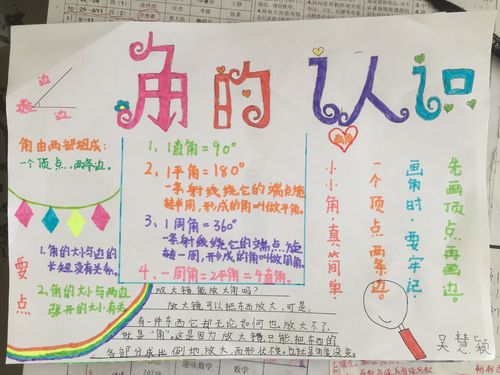 角的认识
边
边
角由两部组成:
一个顶点,两条边。
要点
1.角的大小与边的
长短没有关系。
2.角的大小与两边
张开的大小有关
1、1直角=90°
2、1平角=180°
一条射线绕它的端点旋
转半周,形成的角叫做平角。
3、1周角=360°
一条射线绕它的端点旋
转一周,形成的角叫做周角。
4、一周角=2平角=4直角。
小小角,真简单,
一个顶点两条边。
画角时,要牢记,
先画顶点再画边。
放大镜能放大角吗?
放大镜可以把东西放大,可是,
有一件东西它却无论如何也放大不了,
就是“角”。这是因为放大镜只能把东西的
各部分成比例地放大,而形状不变。也就是角度没变。
吴慧颖
趣味数学